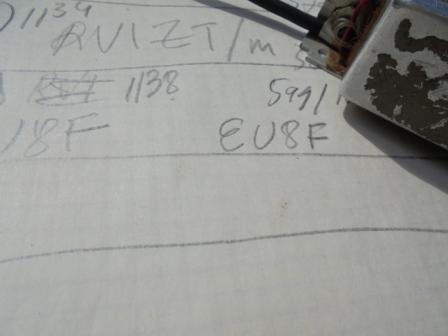 1134
RV1ZT/m
1138 599/
U8F EU8F